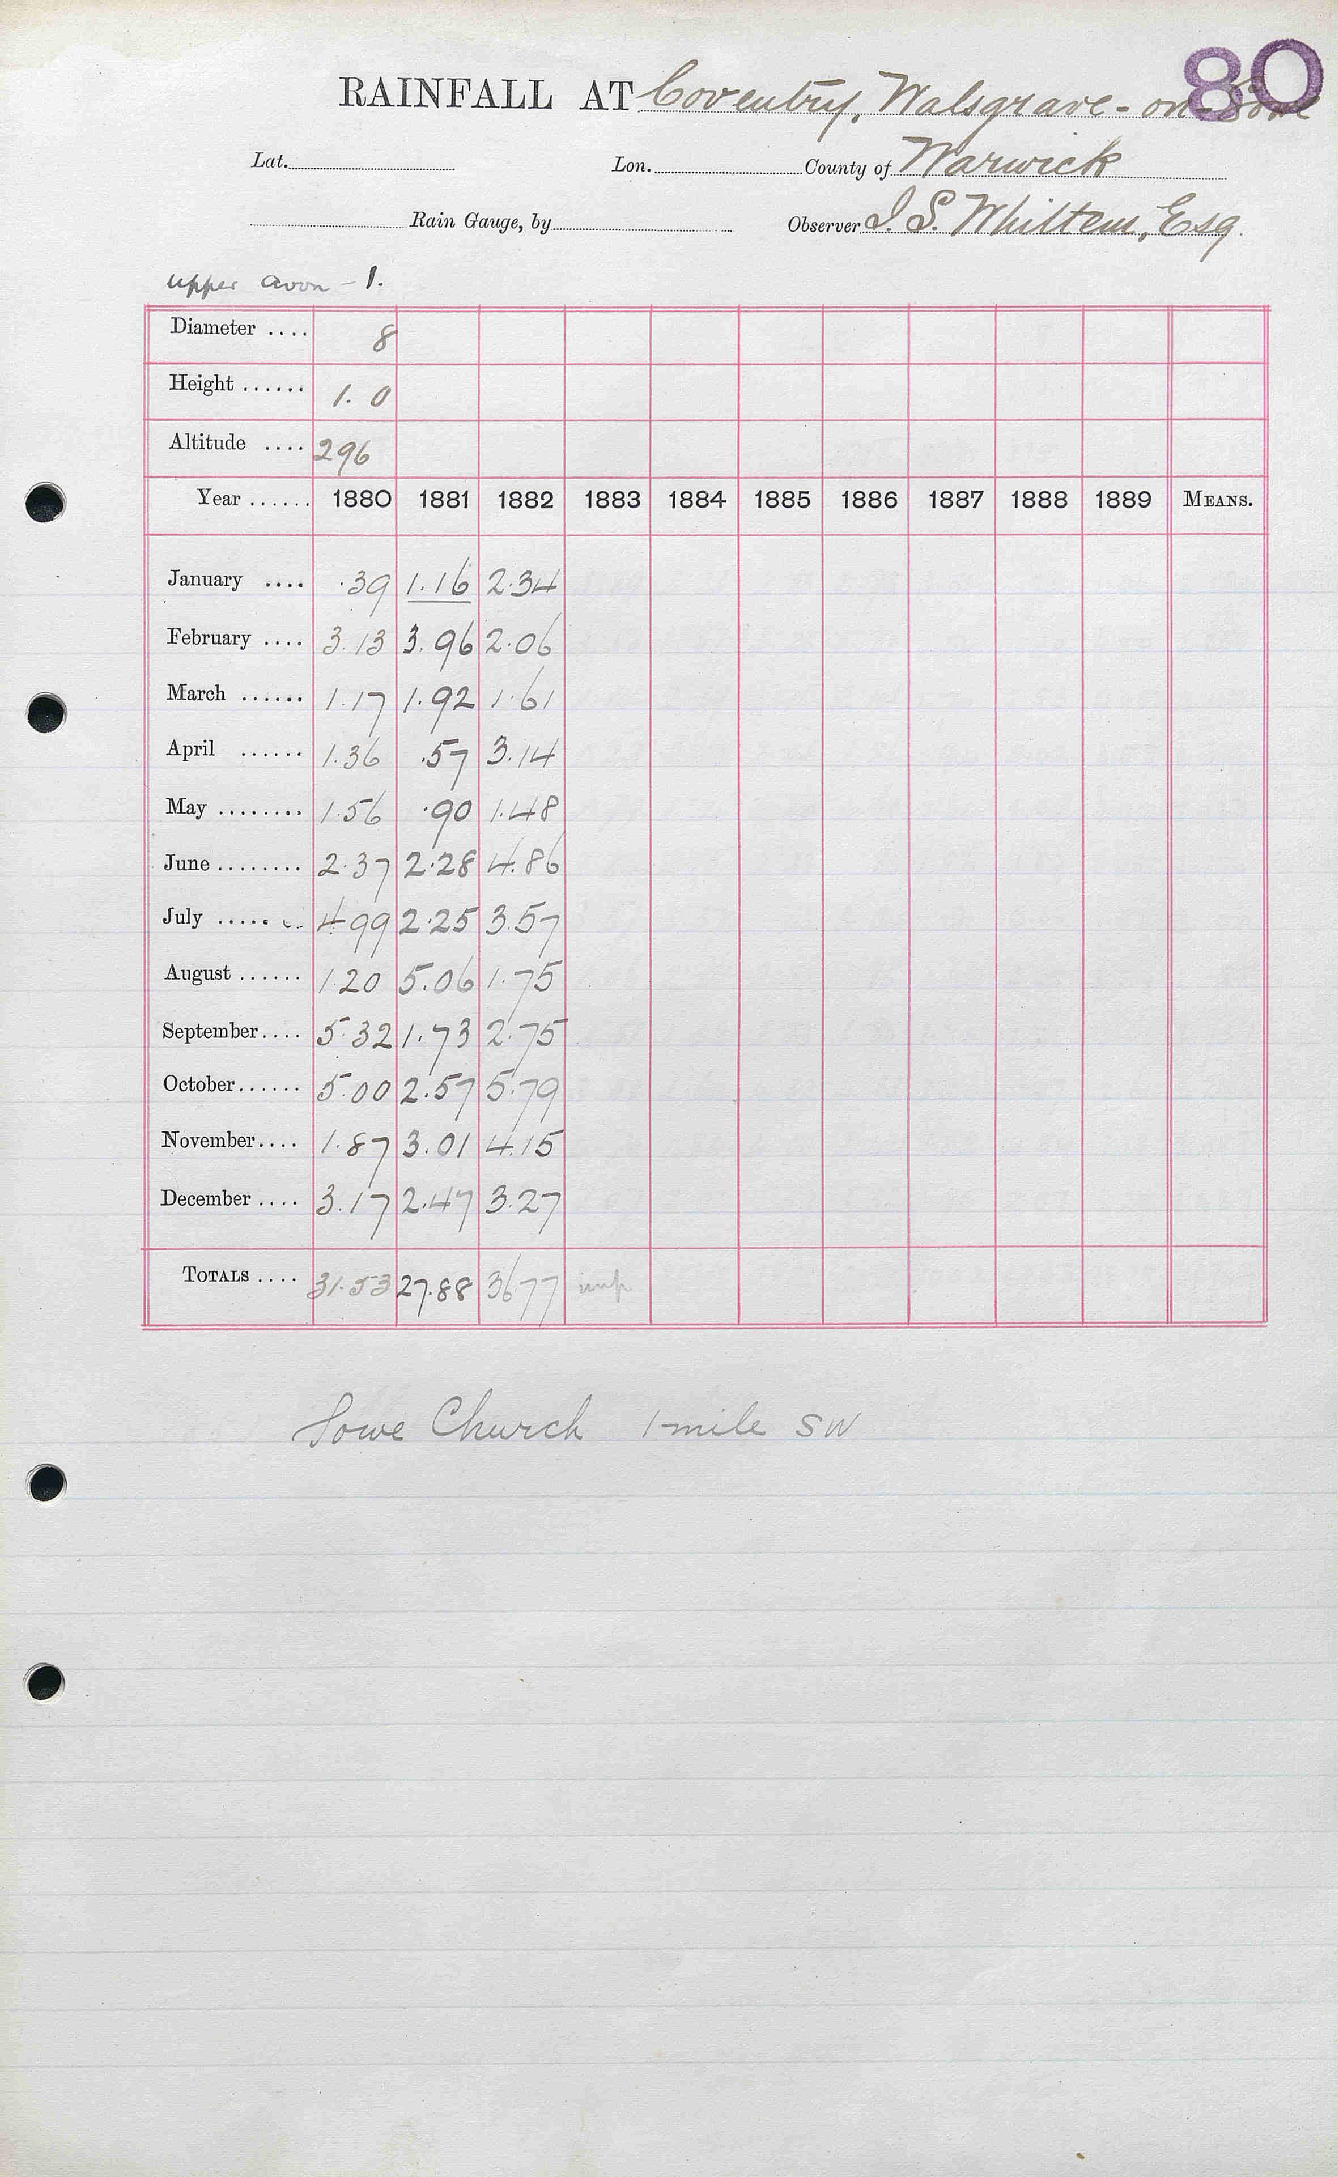 80
RAINFALL AT Coventry, Walsgrave-on-Sowe
Lat. Lon. County of Warwick
Rain Gauge, by Observer I. S. Whittem, Esq.
upper avon - 1.
Diameter .... 8
Height ...... 1. 0
Altitude .... 296
Year ...... 1880 1881 1882 1883 1884 1885 1886 1887 1888 1889 MEANS.
January .... .39 1.16 2.34
February .... 3.13 3.96 2.06
March ...... 1.17 1.92 1.61
April ...... 1.36 .57 3.14
May ........ 1.56 .90 1.48
June ........ 2.37 2.28 4.86
July ..... 4.99 2.25 3.57
August ...... 1.20 5.06 1.75
September .... 5.32 1.73 2.75
October ...... 5.00 2.57 5.79
November .... 1.87 3.01 4.15
December .... 3.17 2.47 3.27
TOTALS .... 31.53 27.88 3677 imp
Sowe Church 1 mile SW